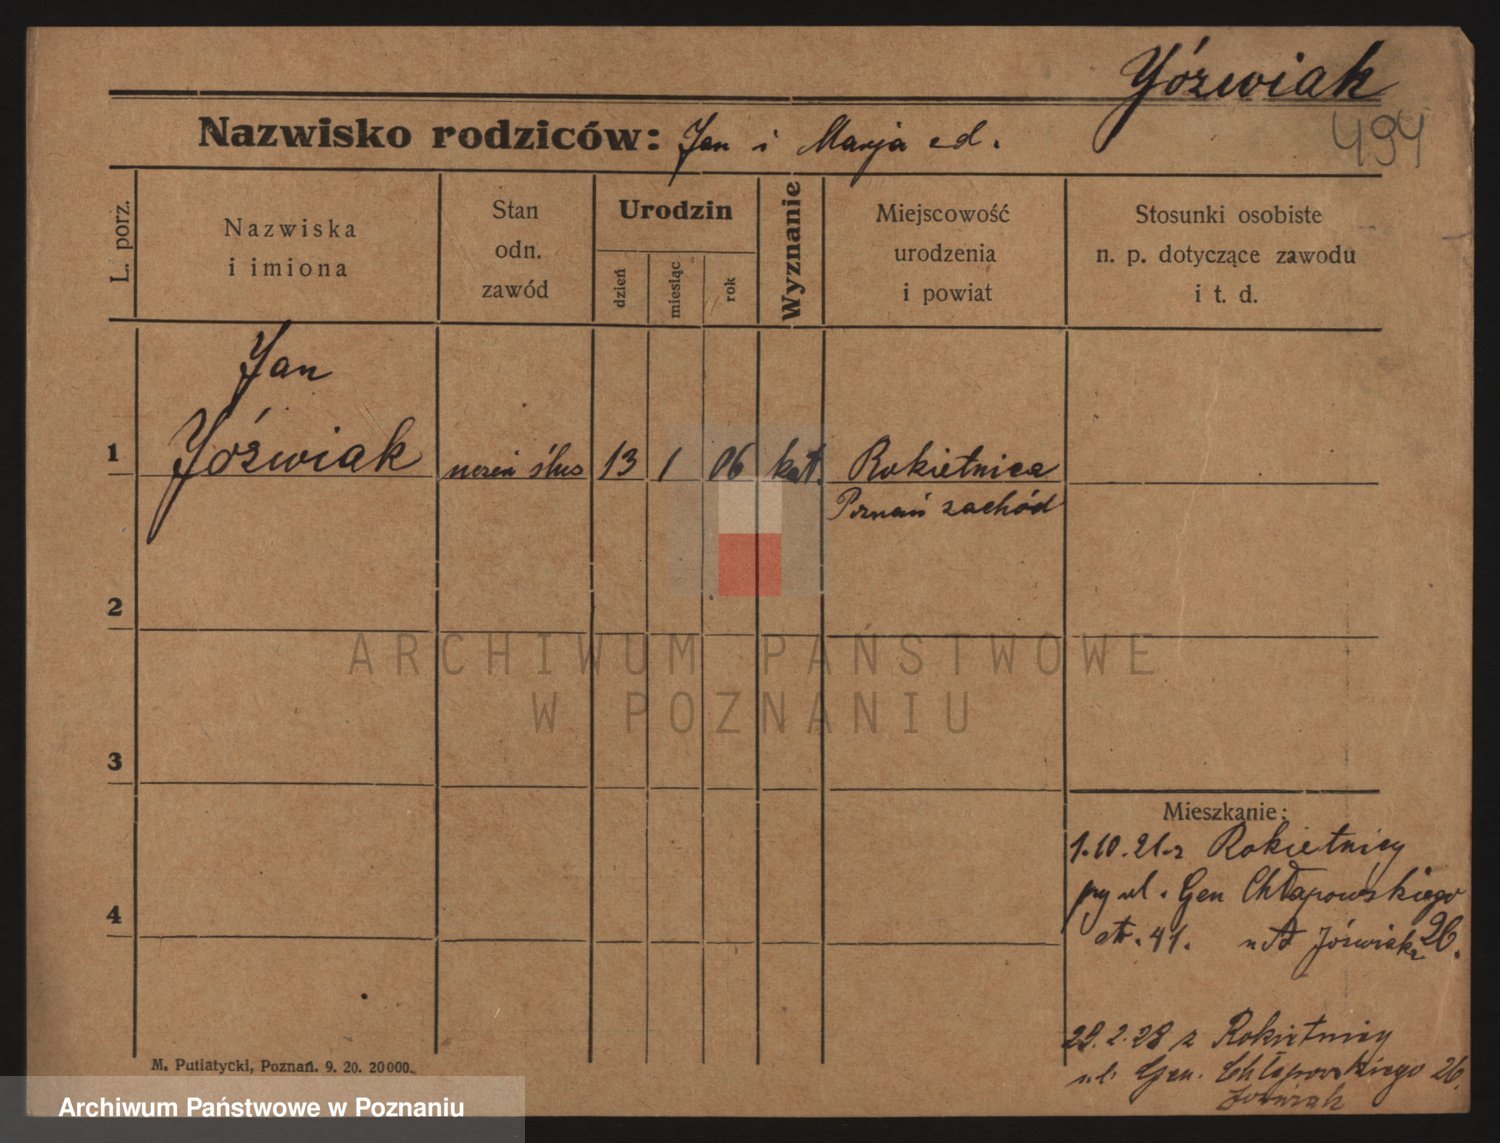 Jóźwiak
494
Nazwisko rodziców: Jan i Marja ed.
L. porz.
Nazwiska
i imiona
Stan
odn.
zawód
Urodzin
dzień
miesiąc
rok
Wyznanie
Miejscowość
urodzenia
i powiat
Stosunki osobiste
n. p. dotyczące zawodu
i t. d.
Jan
1 Jóźwiak uczeń ślus 13 1 06 kat. Rokietnica
Poznań zachód
2
3
4
Mieszkanie:
1.10.21. z Rokietnicy
ul. Gen Chłapowskiego
41. Jóźwiak 26.
29.2.28 z Rokietnicy
ul. Gen. Chłapowskiego 26
Jóźwiak
M. Putiatycki, Poznań. 9. 20. 20000.
ARCHIWUM PAŃSTWOWE
W POZNANIU
Archiwum Państwowe w Poznaniu